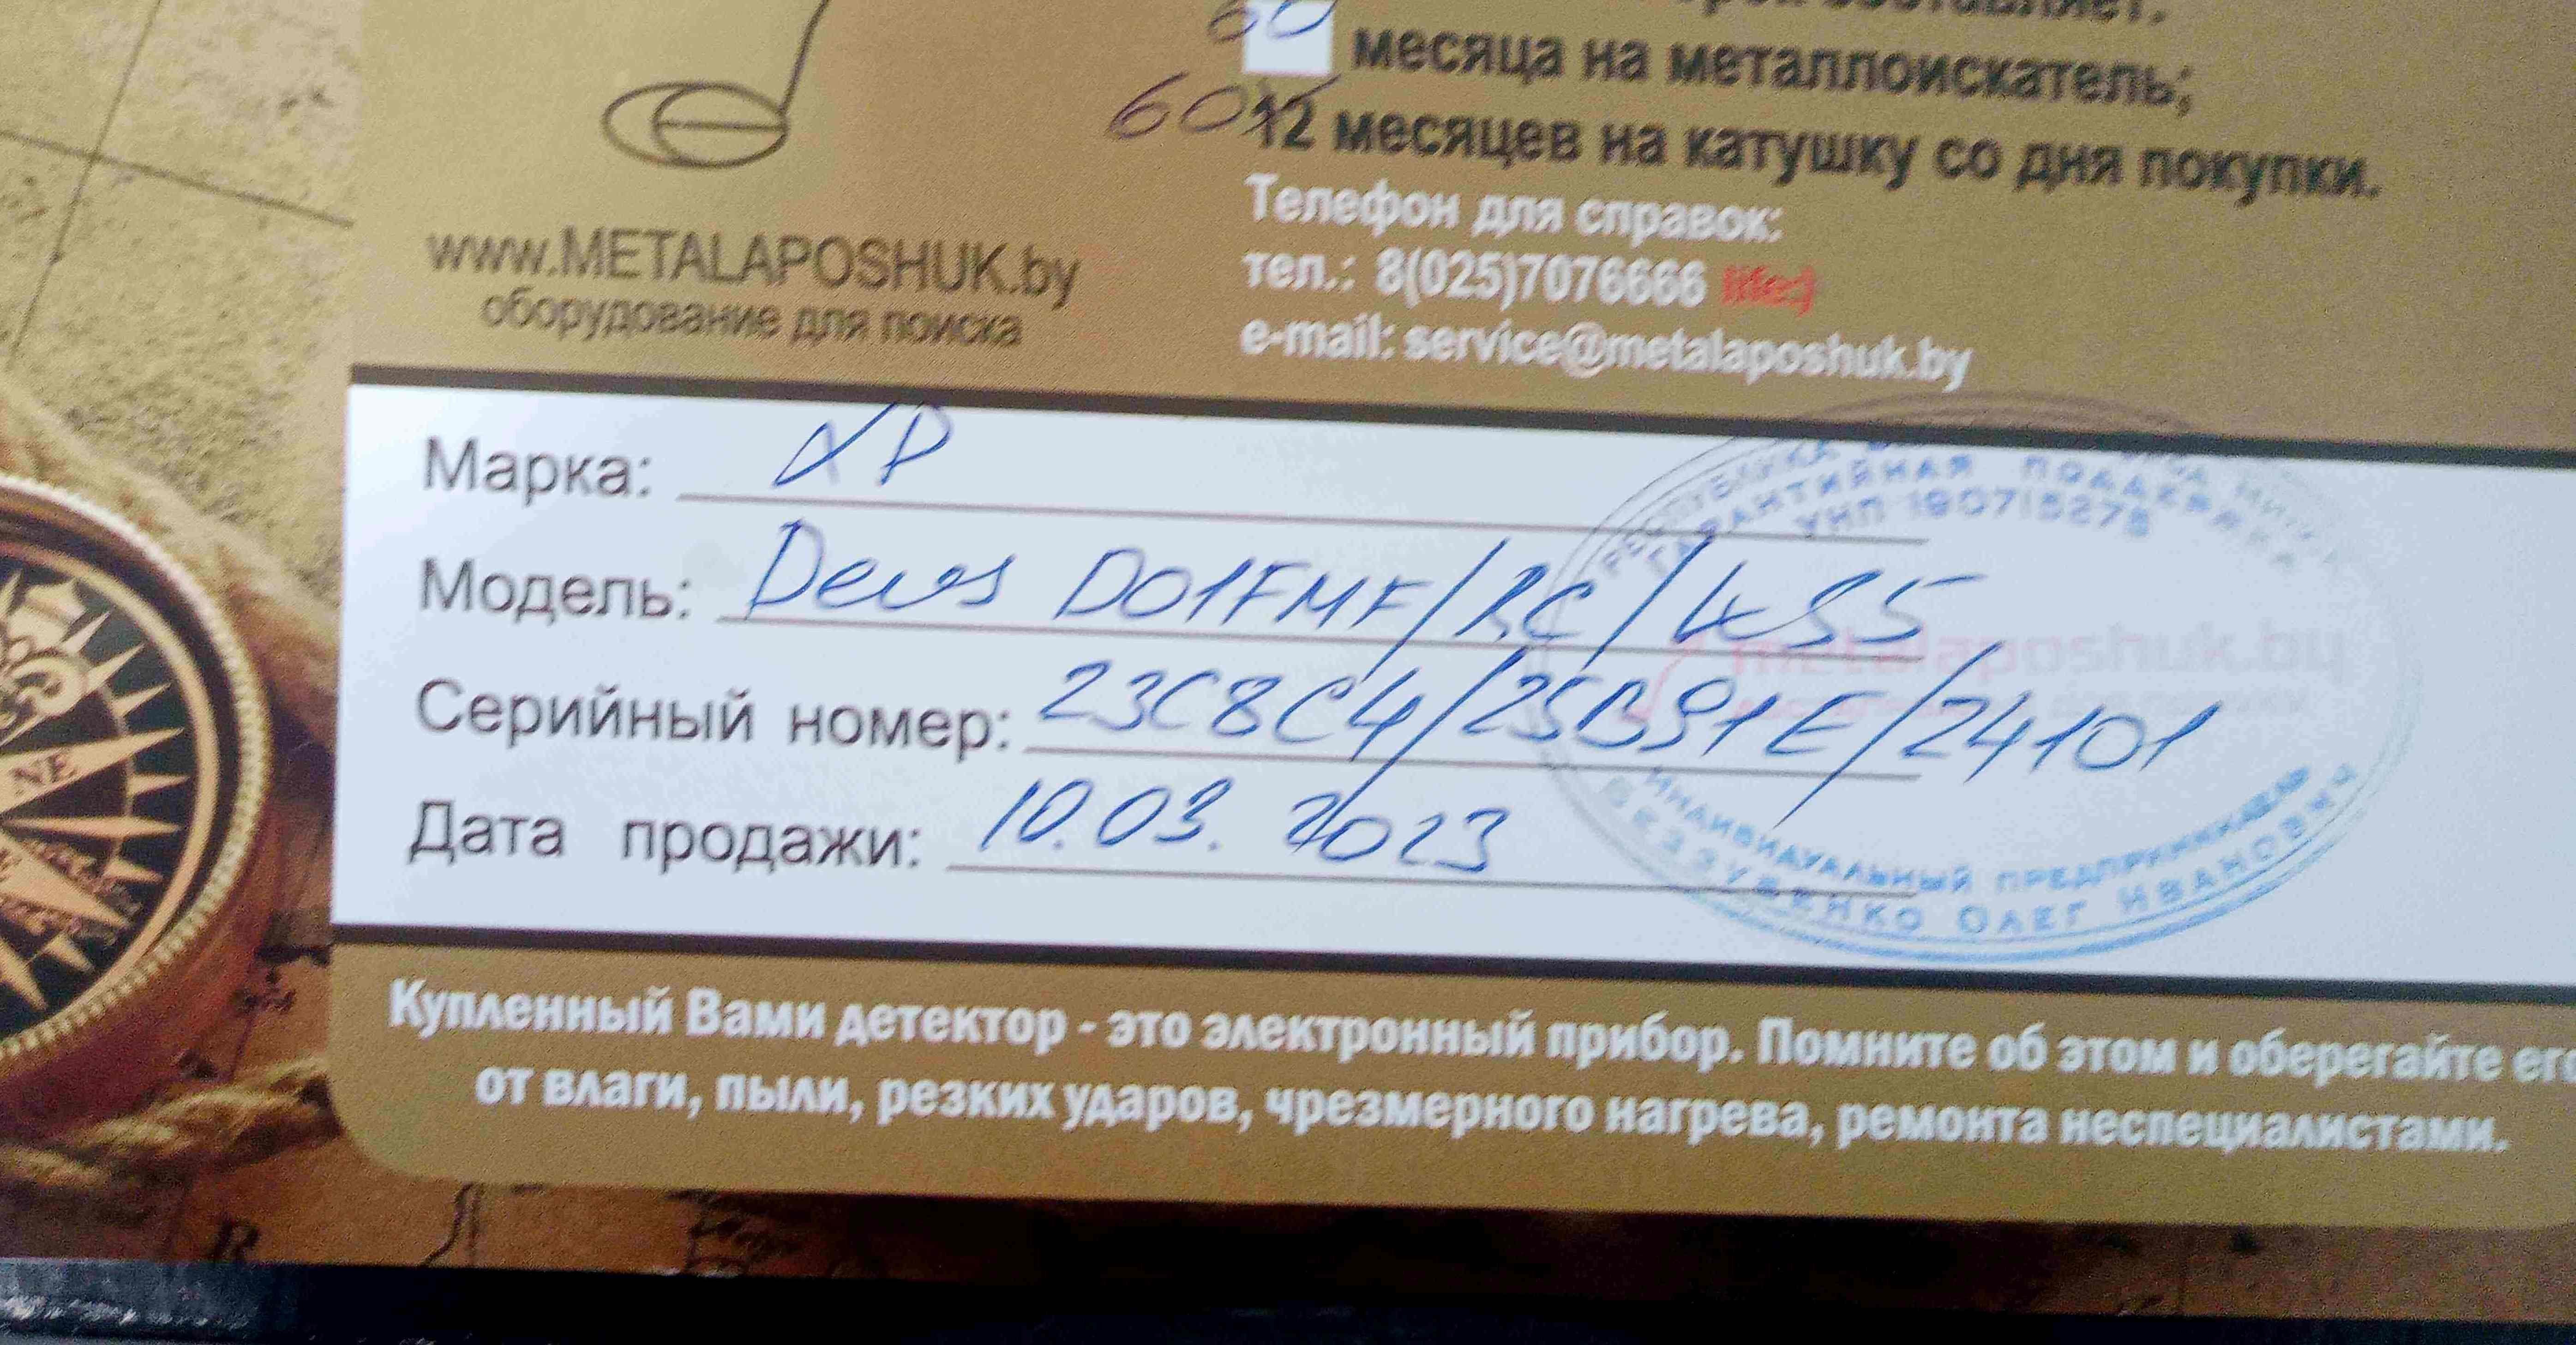 составляет:
60 месяца на металлоискатель;
60 12 месяцев на катушку со дня покупки.
Телефон для справок:
тел.: 8(025)7076666 life:)
e-mail: service@metalaposhuk.by
www.METALAPOSHUK.by
оборудование для поиска
Марка: XP
Модель: Deus D01FMF/RC/WS5
Серийный номер: 23C8C4/25B91E/24101
Дата продажи: 10.03.2023
ГАРАНТИЙНАЯ ПОДДЕРЖКА
УНП 190715275
metalaposhuk.by
ИНДИВИДУАЛЬНЫЙ ПРЕДПРИНИМАТЕЛЬ
ОЛЕГ ИВАНОВИЧ
Купленный Вами детектор - это электронный прибор. Помните об этом и оберегайте его
от влаги, пыли, резких ударов, чрезмерного нагрева, ремонта неспециалистами.
NE
R